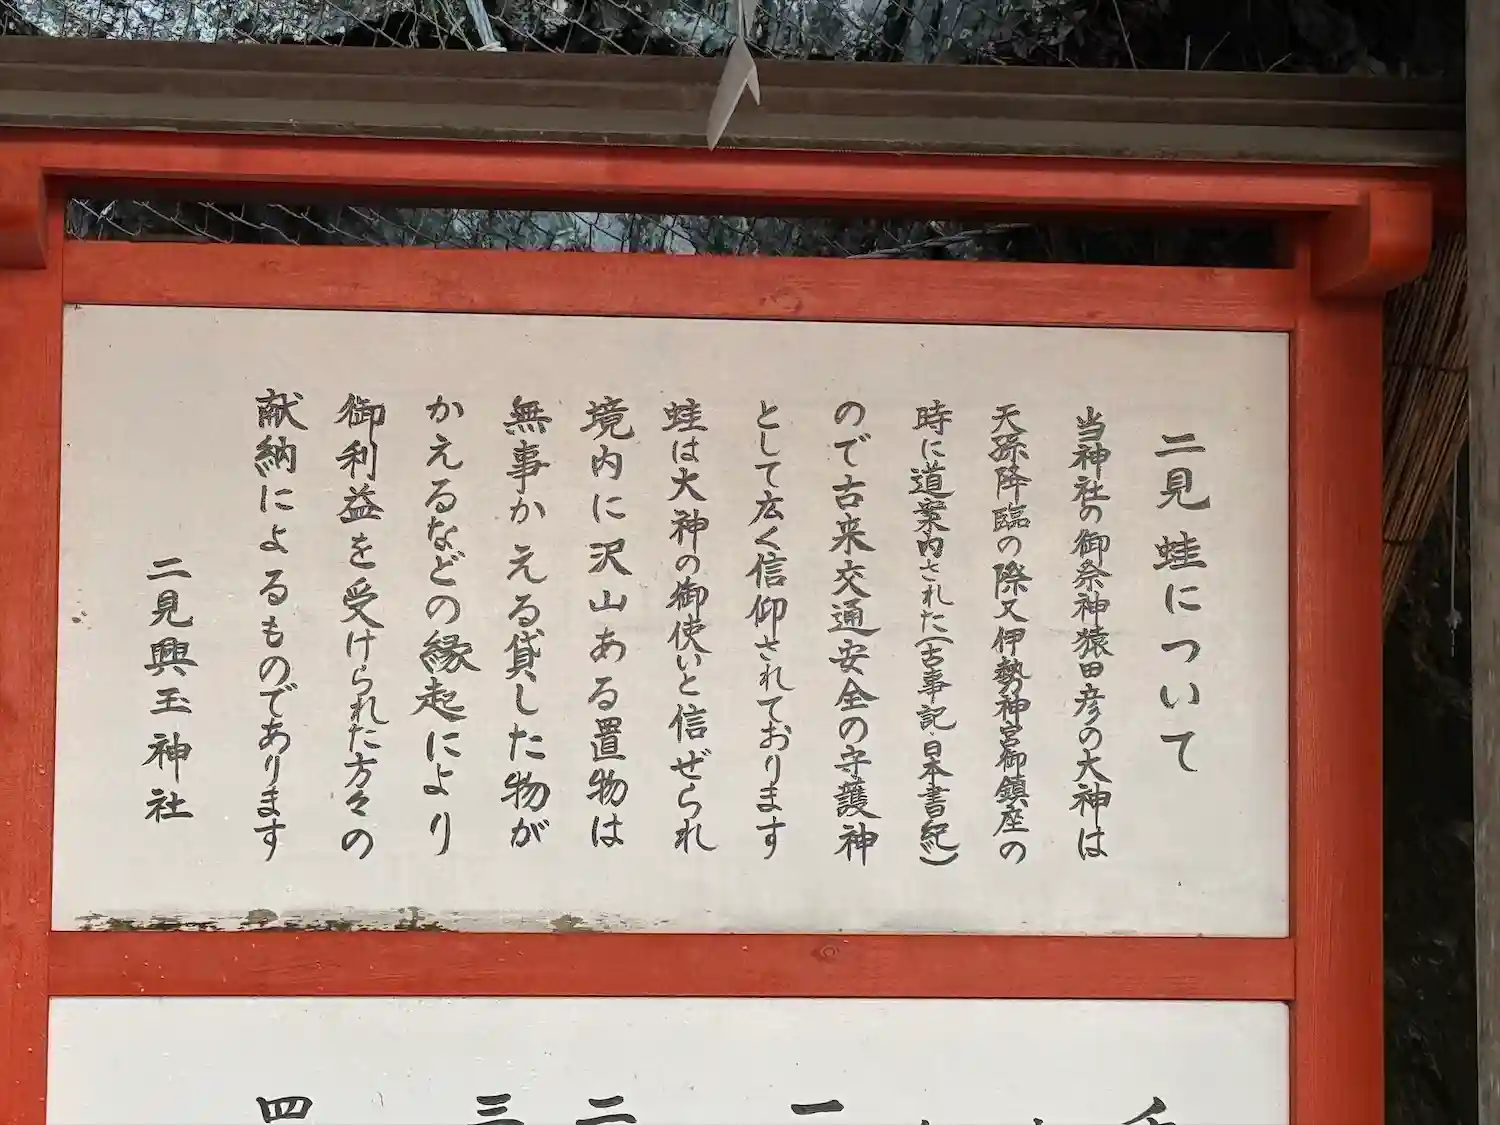 二見蛙について
当神社の御祭神猿田彦の大神は
天孫降臨の際又伊勢神宮御鎮座の
時に道案内された(古事記・日本書紀)
ので古来交通安全の守護神
として広く信仰されております
蛙は大神の御使いと信ぜられ
境内に沢山ある置物は
無事かえる貸した物が
かえるなどの縁起により
御利益を受けられた方々の
献納によるものであります
二見興玉神社
一
二
三
四